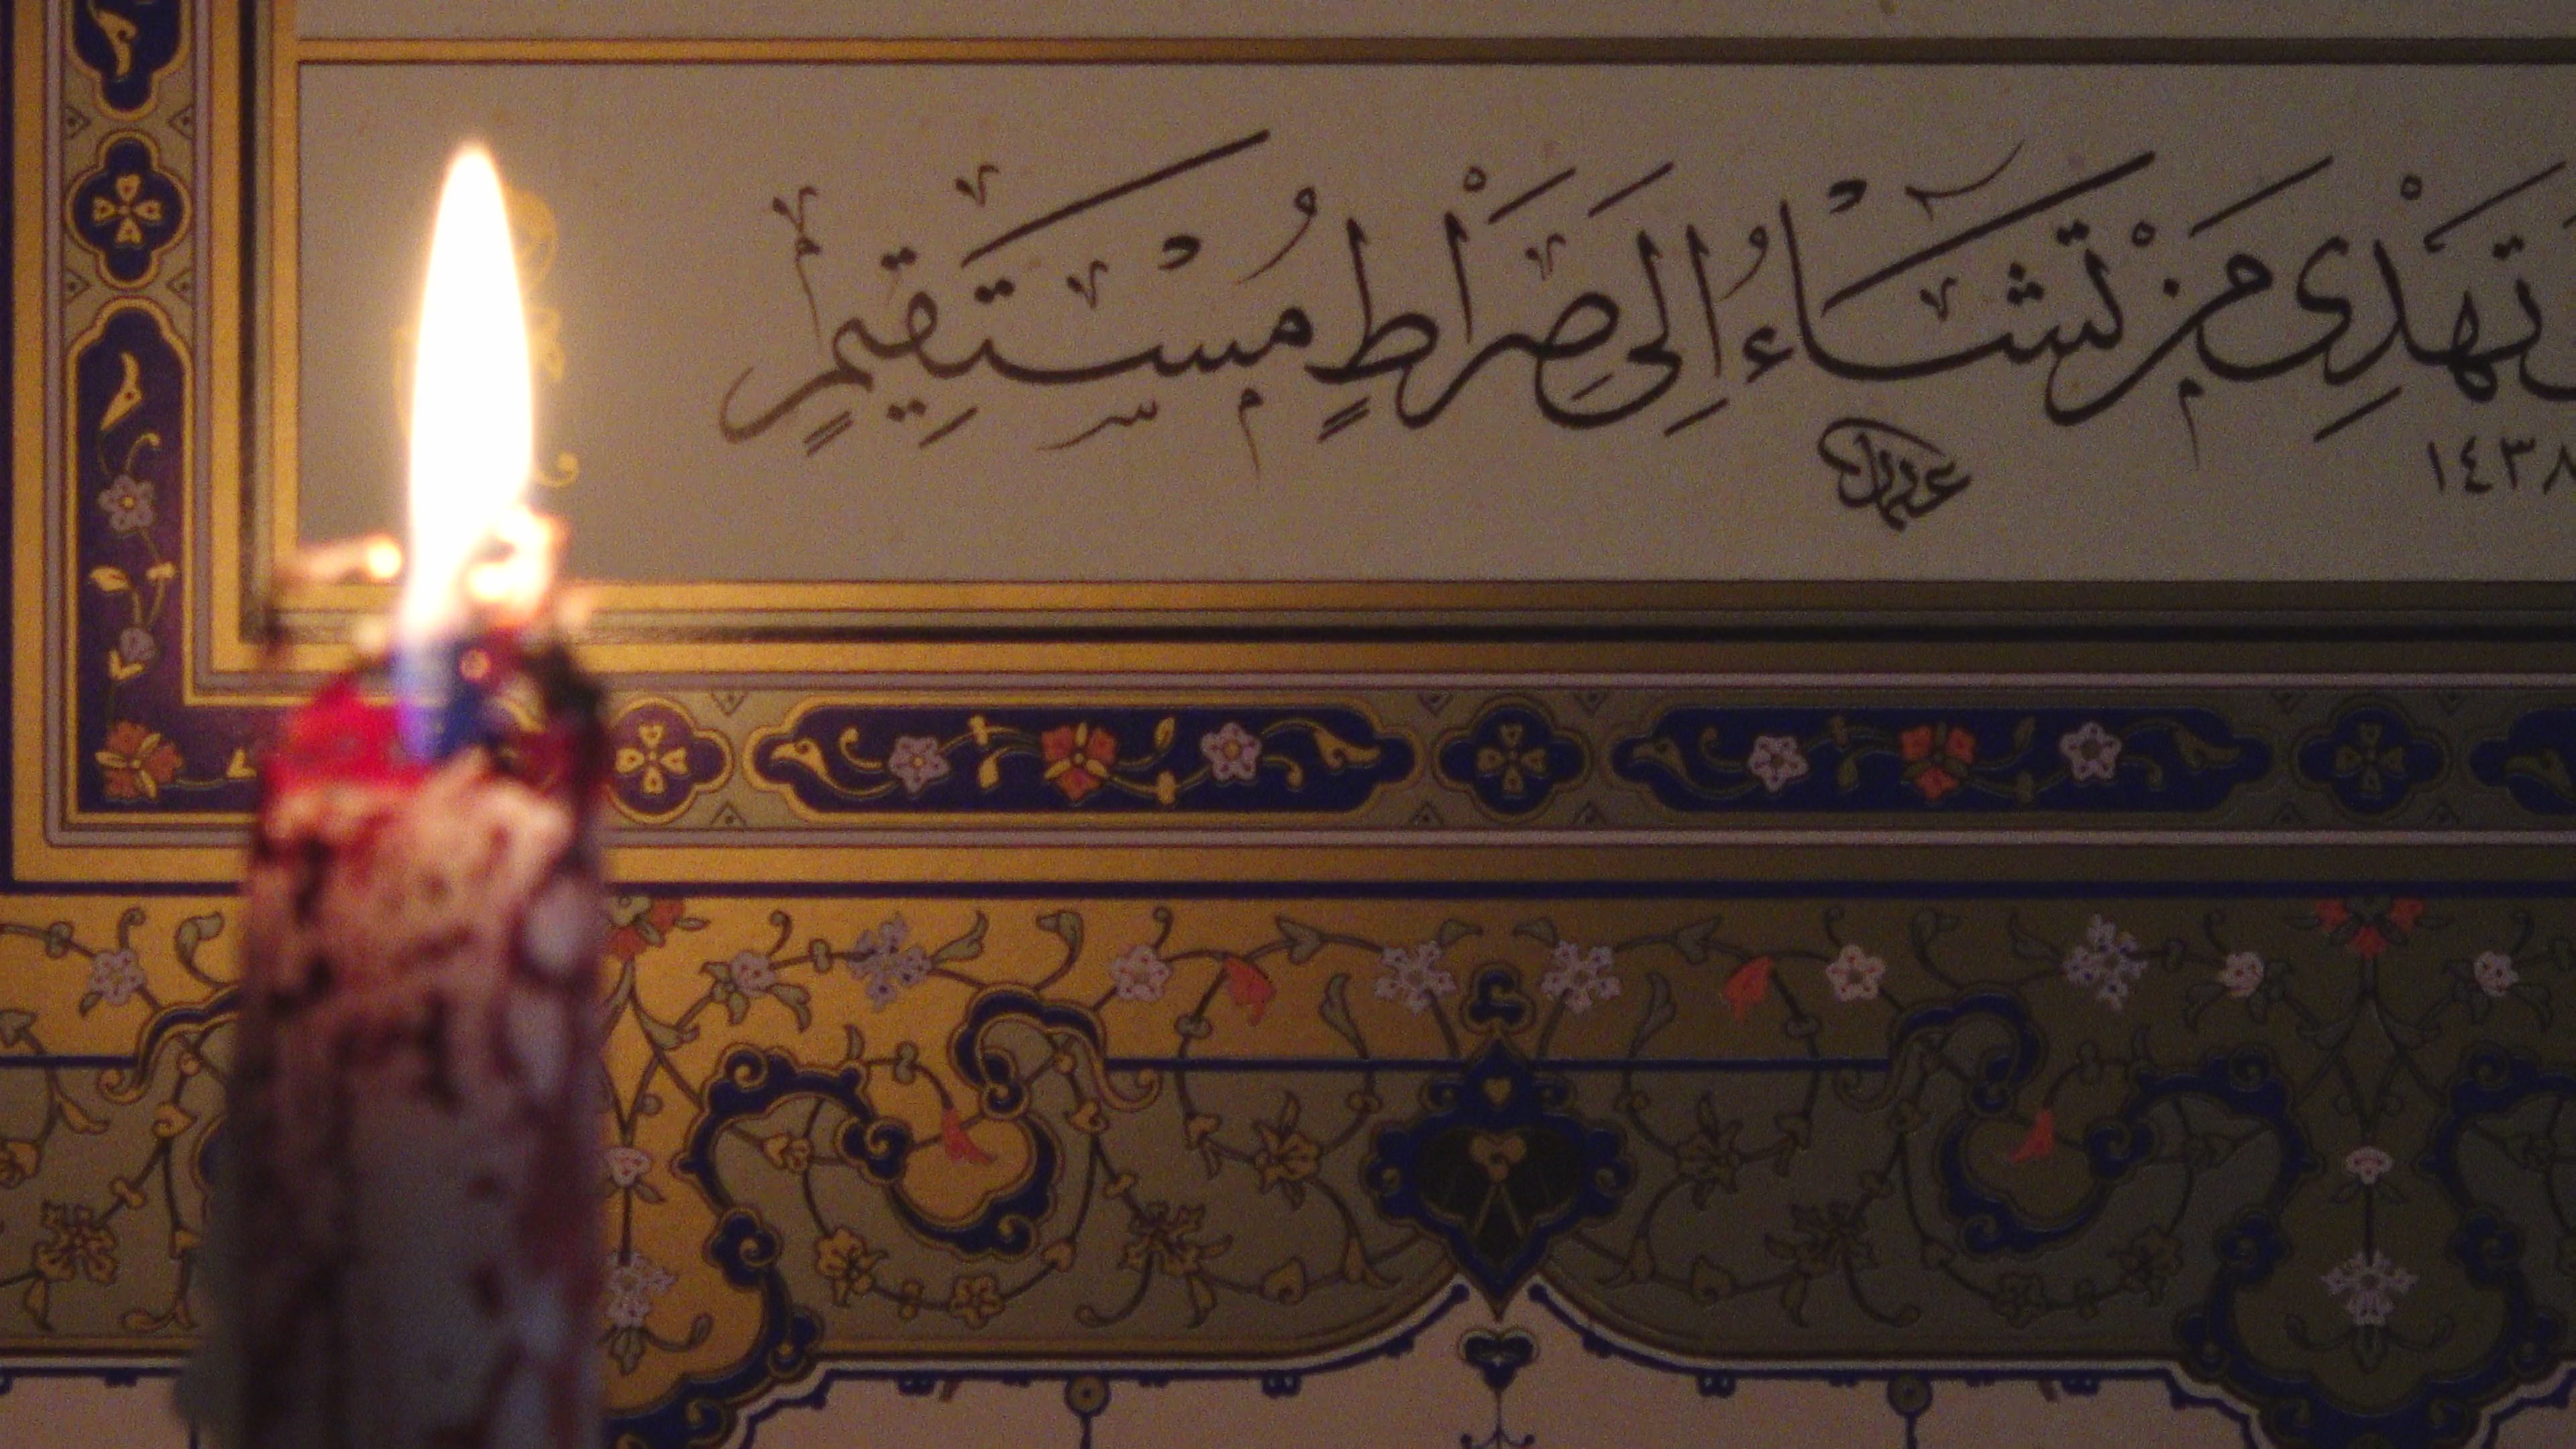 تَهْدِى مَنْ تَشَاءُ اِلٰى صِرَاطٍ مُسْتَقِيمٍ
١٤٣٨